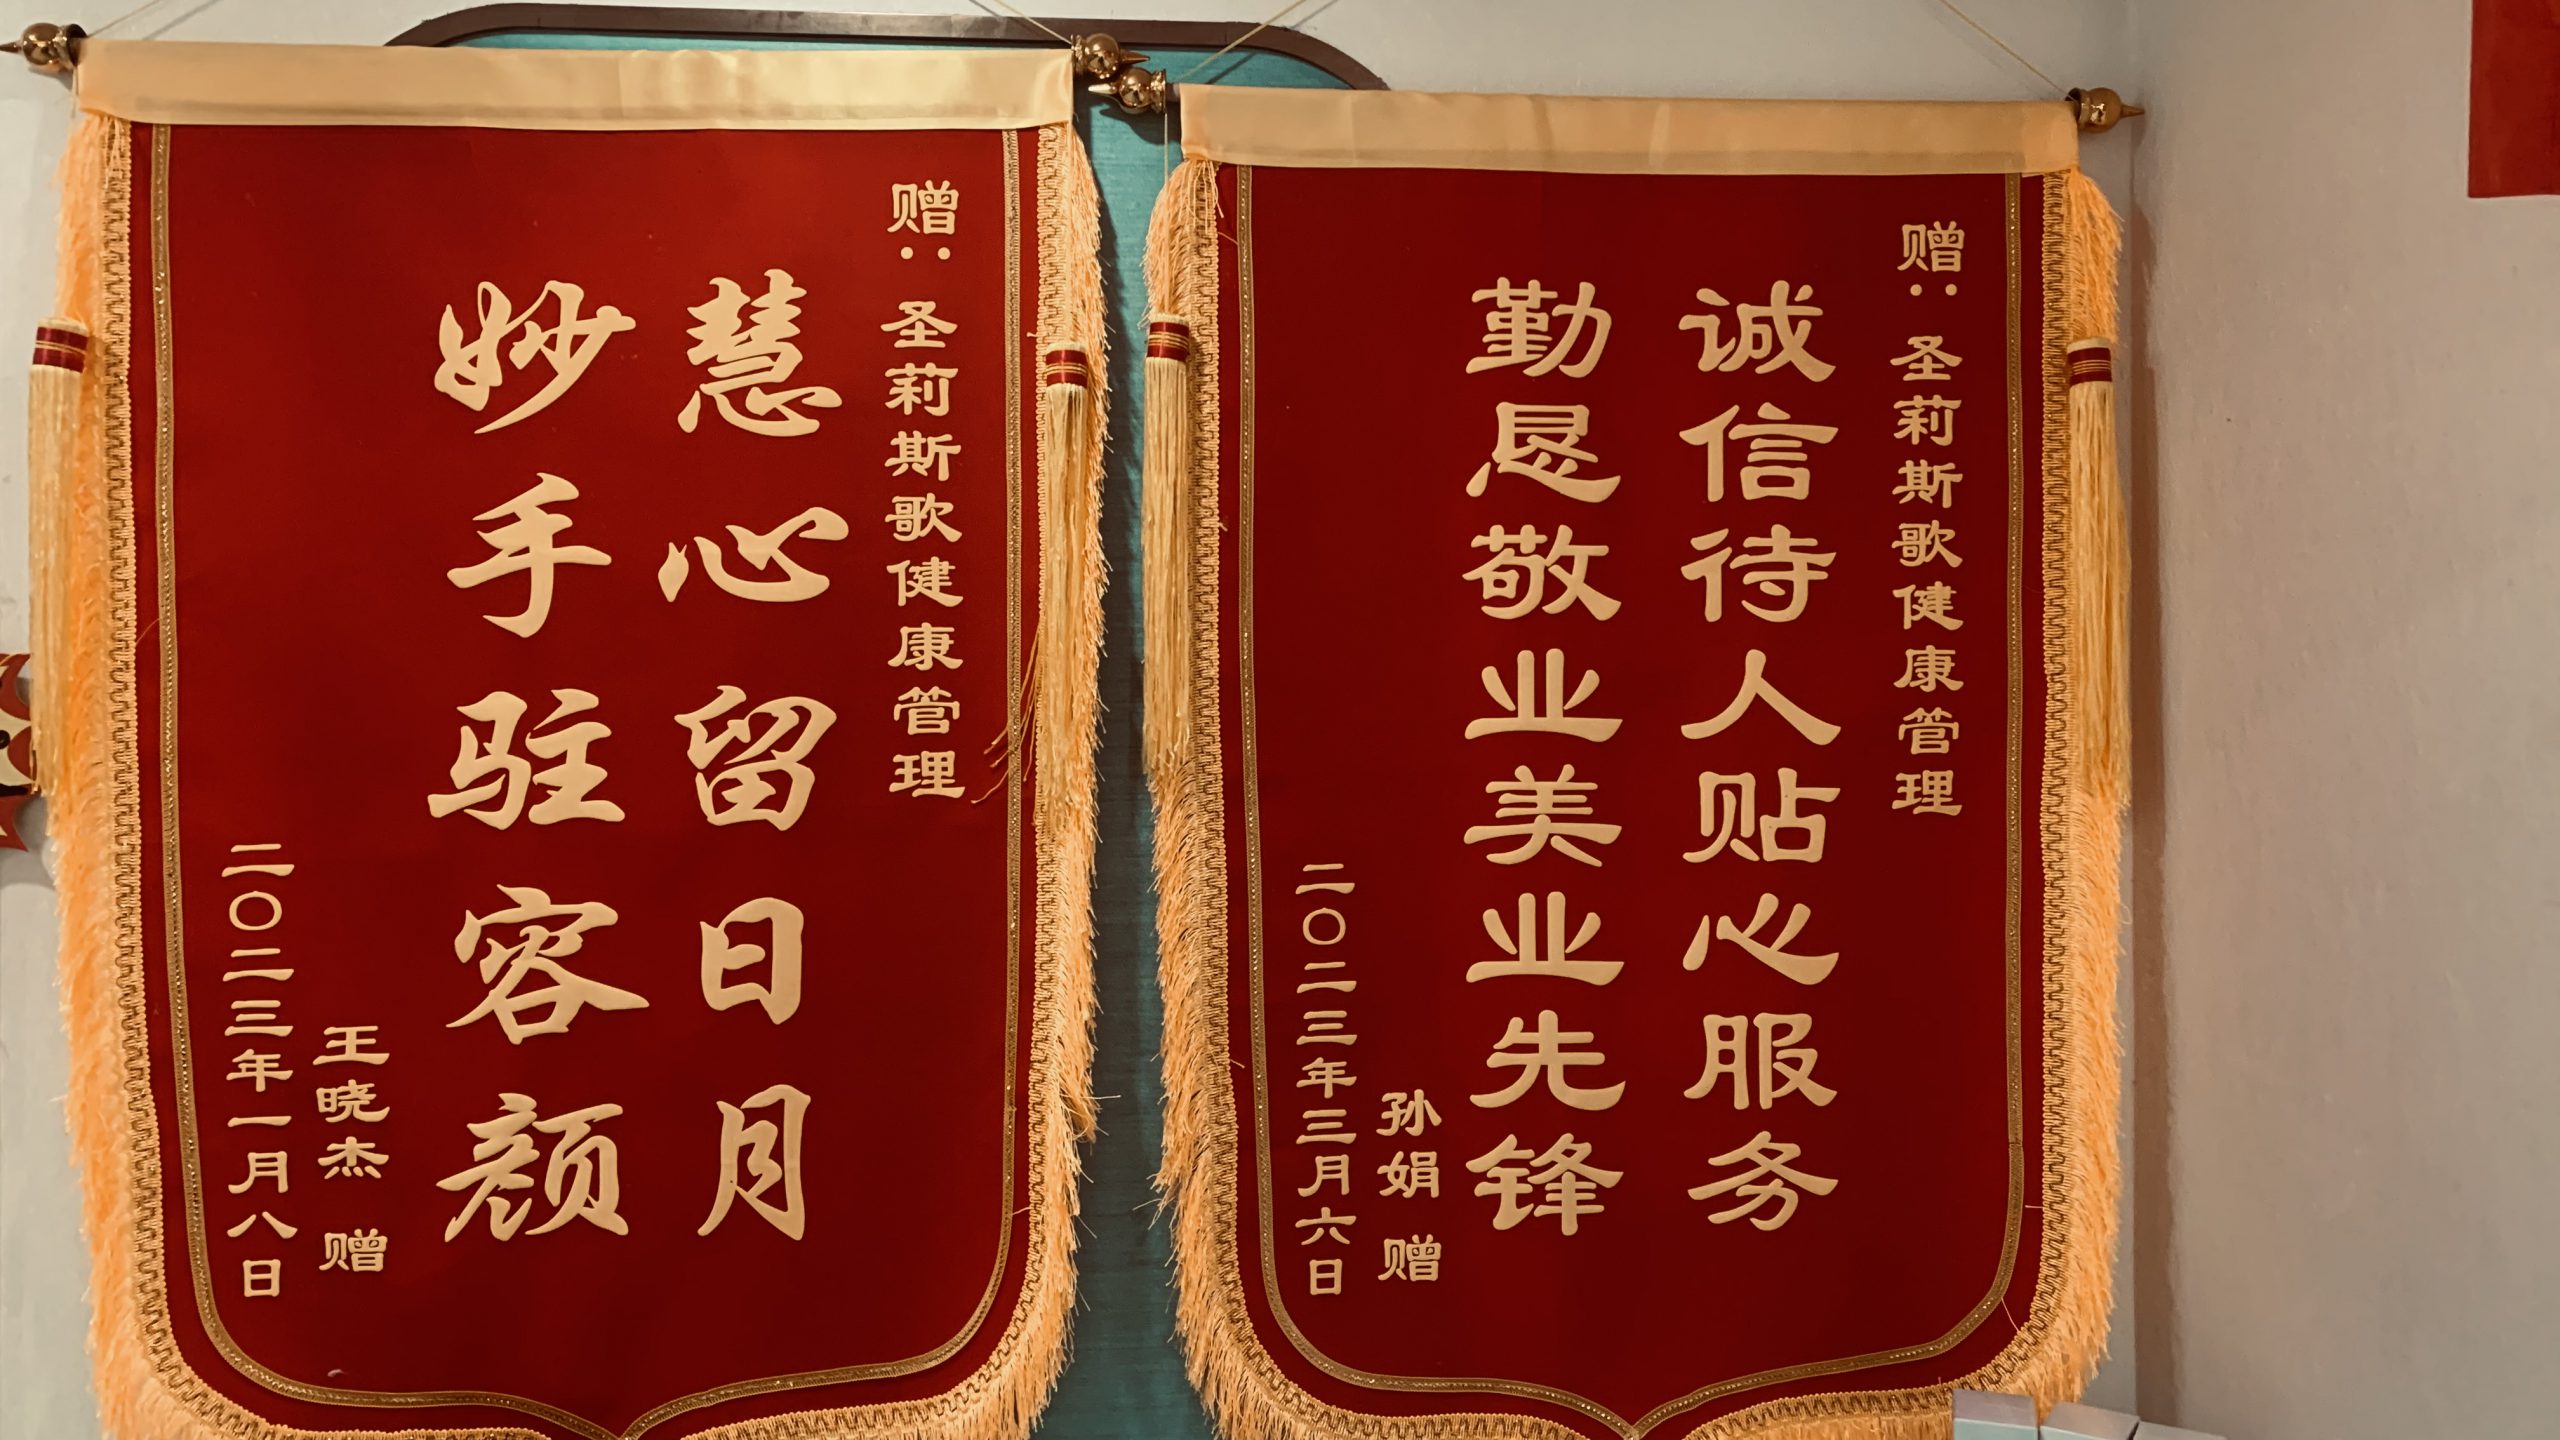 赠：圣莉斯歌健康管理
慧心留日月
妙手驻容颜
王晓杰 赠
二〇二三年一月八日
赠：圣莉斯歌健康管理
诚信待人贴心服务
勤恳敬业美业先锋
孙娟 赠
二〇二三年三月六日